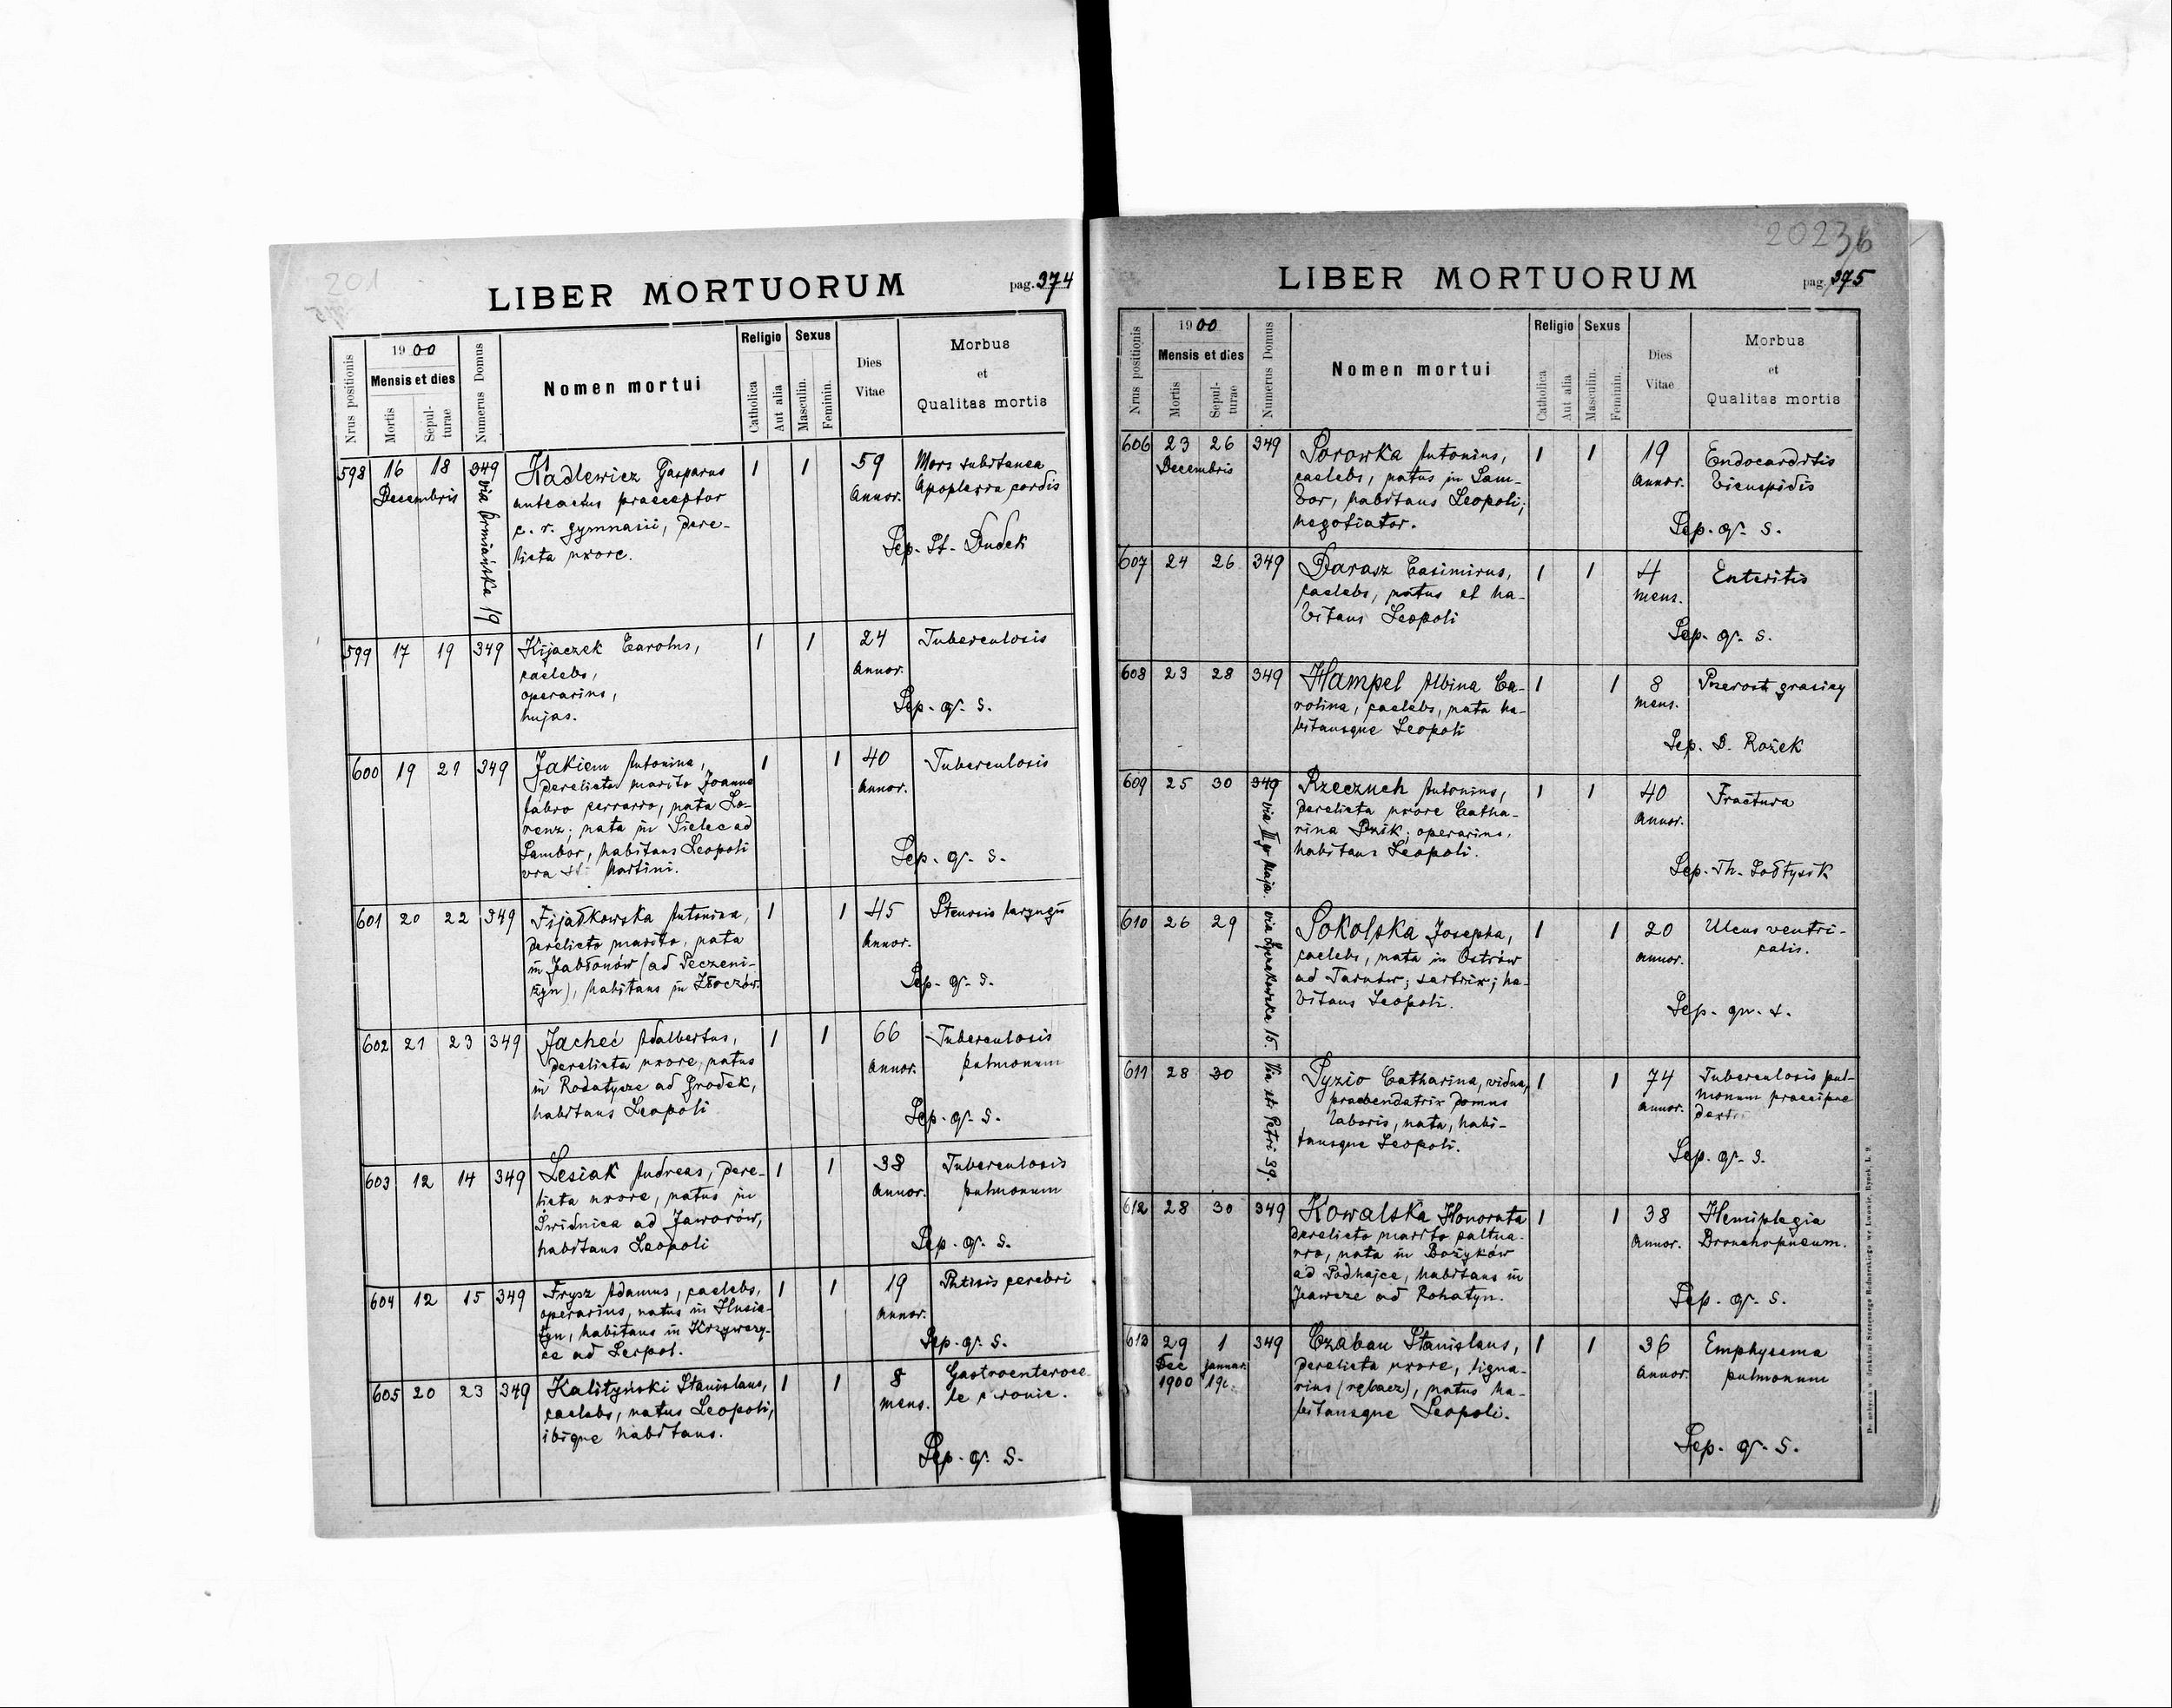 201
LIBER MORTUORUM
pag. 374
Nrus positionis
1900
Mensis et dies
Mortis
Sepulturae
Numerus Domus
Nomen mortui
Religio
Catholica
Aut alia
Sexus
Masculin.
Feminin.
Dies
Vitae
Morbus
et
Qualitas mortis
598 16 18 349 Kadlewicz Gasparus 1 1 59 Mors subitanea
Decembris via Ormiańska 19 anteactus praeceptor Annor. Apoplexia cordis
c. r. gymnasii, dere-
licta uxore. Sep. St. Dudek
599 17 19 349 Kijaczek Carolus, 1 1 24 Tuberculosis
caelebs, Annor.
operarius, Sep. qr. s.
hujas.
600 19 21 349 Jakiem Antonina, 1 1 40 Tuberculosis
derelicto marito Joanne Annor.
fabro ferrario, nata Lo-
renz; nata in Sielec ad
Sambor, habitans Leopoli Sep. qr. s.
via St. Martini.
601 20 22 349 Fijałkowska Antonina, 1 1 45 Stenosis laryngis
derelicto marito, nata Annor.
in Jabłonów (ad Peczeni-
żyn), habitans in Złoczów. Sep. qr. s.
602 21 23 349 Jacheć Adalbertus, 1 1 66 Tuberculosis
derelicta uxore, natus Annor. pulmonum
in Rodatycze ad Grodek,
habitans Leopoli Sep. qr. s.
603 12 14 349 Lesiak Andreas, dere- 1 1 38 Tuberculosis
licta uxore, natus in Annor. pulmonum
Świdnica ad Jaworów,
habitans Leopoli Sep. qr. s.
604 12 15 349 Frysz Adamus, caelebs, 1 1 19 Phtisis cerebri
operarius, natus in Husia- Annor.
tyn, habitans in Krzywczy-
ce ad Leopol. Sep. qr. s.
605 20 23 349 Kalityński Stanislaus, 1 1 8 Gastroenteroce
caelebs, natus Leopoli, mens.
ibique habitans.
Sep. qr. s.
LIBER MORTUORUM
pag. 375
Nrus positionis
1900
Mensis et dies
Mortis
Sepulturae
Numerus Domus
Nomen mortui
Religio
Catholica
Aut alia
Sexus
Masculin.
Feminin.
Dies
Vitae
Morbus
et
Qualitas mortis
606 23 26 349 Sorowka Antonius, 1 1 19 Endocarditis
Decembris caelebs, natus in Sam- Annor. bicuspidis
bor, habitans Leopoli;
negotiator. Sep. qr. s.
607 24 26 349 Darasz Casimirus, 1 1 4 Enteritis
caelebs, natus et ha- mens.
bitans Leopoli
Sep. qr. s.
608 23 28 349 Hampel Albina Ca- 1 1 8 Przerost grasicy
rolina, caelebs, nata ha- mens.
bitansque Leopoli
Sep. D. Rożek
609 25 30 349 Rzeczuch Antonius, 1 1 40 Fractura
via III go Maja. derelicta uxore Catha- Annor.
rina Dzik; operarius,
habitans Leopoli. Sep. Th. Sołtysik
610 26 29 Sokolska Josepha, 1 1 20 Ulcus ventri-
via Łyczakowska 15. caelebs, nata in Ostrów Annor. culis.
ad Tarnów; sartrix; ha-
bitans Leopoli. Sep.
611 28 30 Pyzio Catharina, vidua, 1 1 74 Tuberculosis pul-
Via sti Petri 39. praebendatrix domus Annor. monum praecipue
laboris, nata, habi-
tansque Leopoli. Sep. qr. s.
612 28 30 349 Kowalska Honorata 1 1 38 Hemiplegia
derelicto marito saltua- Annor. Bronchopneum.
rio, nata in Bożyków
ad Podhajce, habitans in
ad Rohatyn. Sep. qr. s.
613 29 1 349 Czaban Stanislaus, 1 1 36 Emphysema
Dec januar. derelicta uxore, ligna- Annor. pulmonum
1900 rius (rębacz), natus ha-
bitansque Leopoli.
Sep. qr. s.
Do nabycia w drukarni Szczęsnego Bednarskiego we Lwowie, Rynek, l. 9